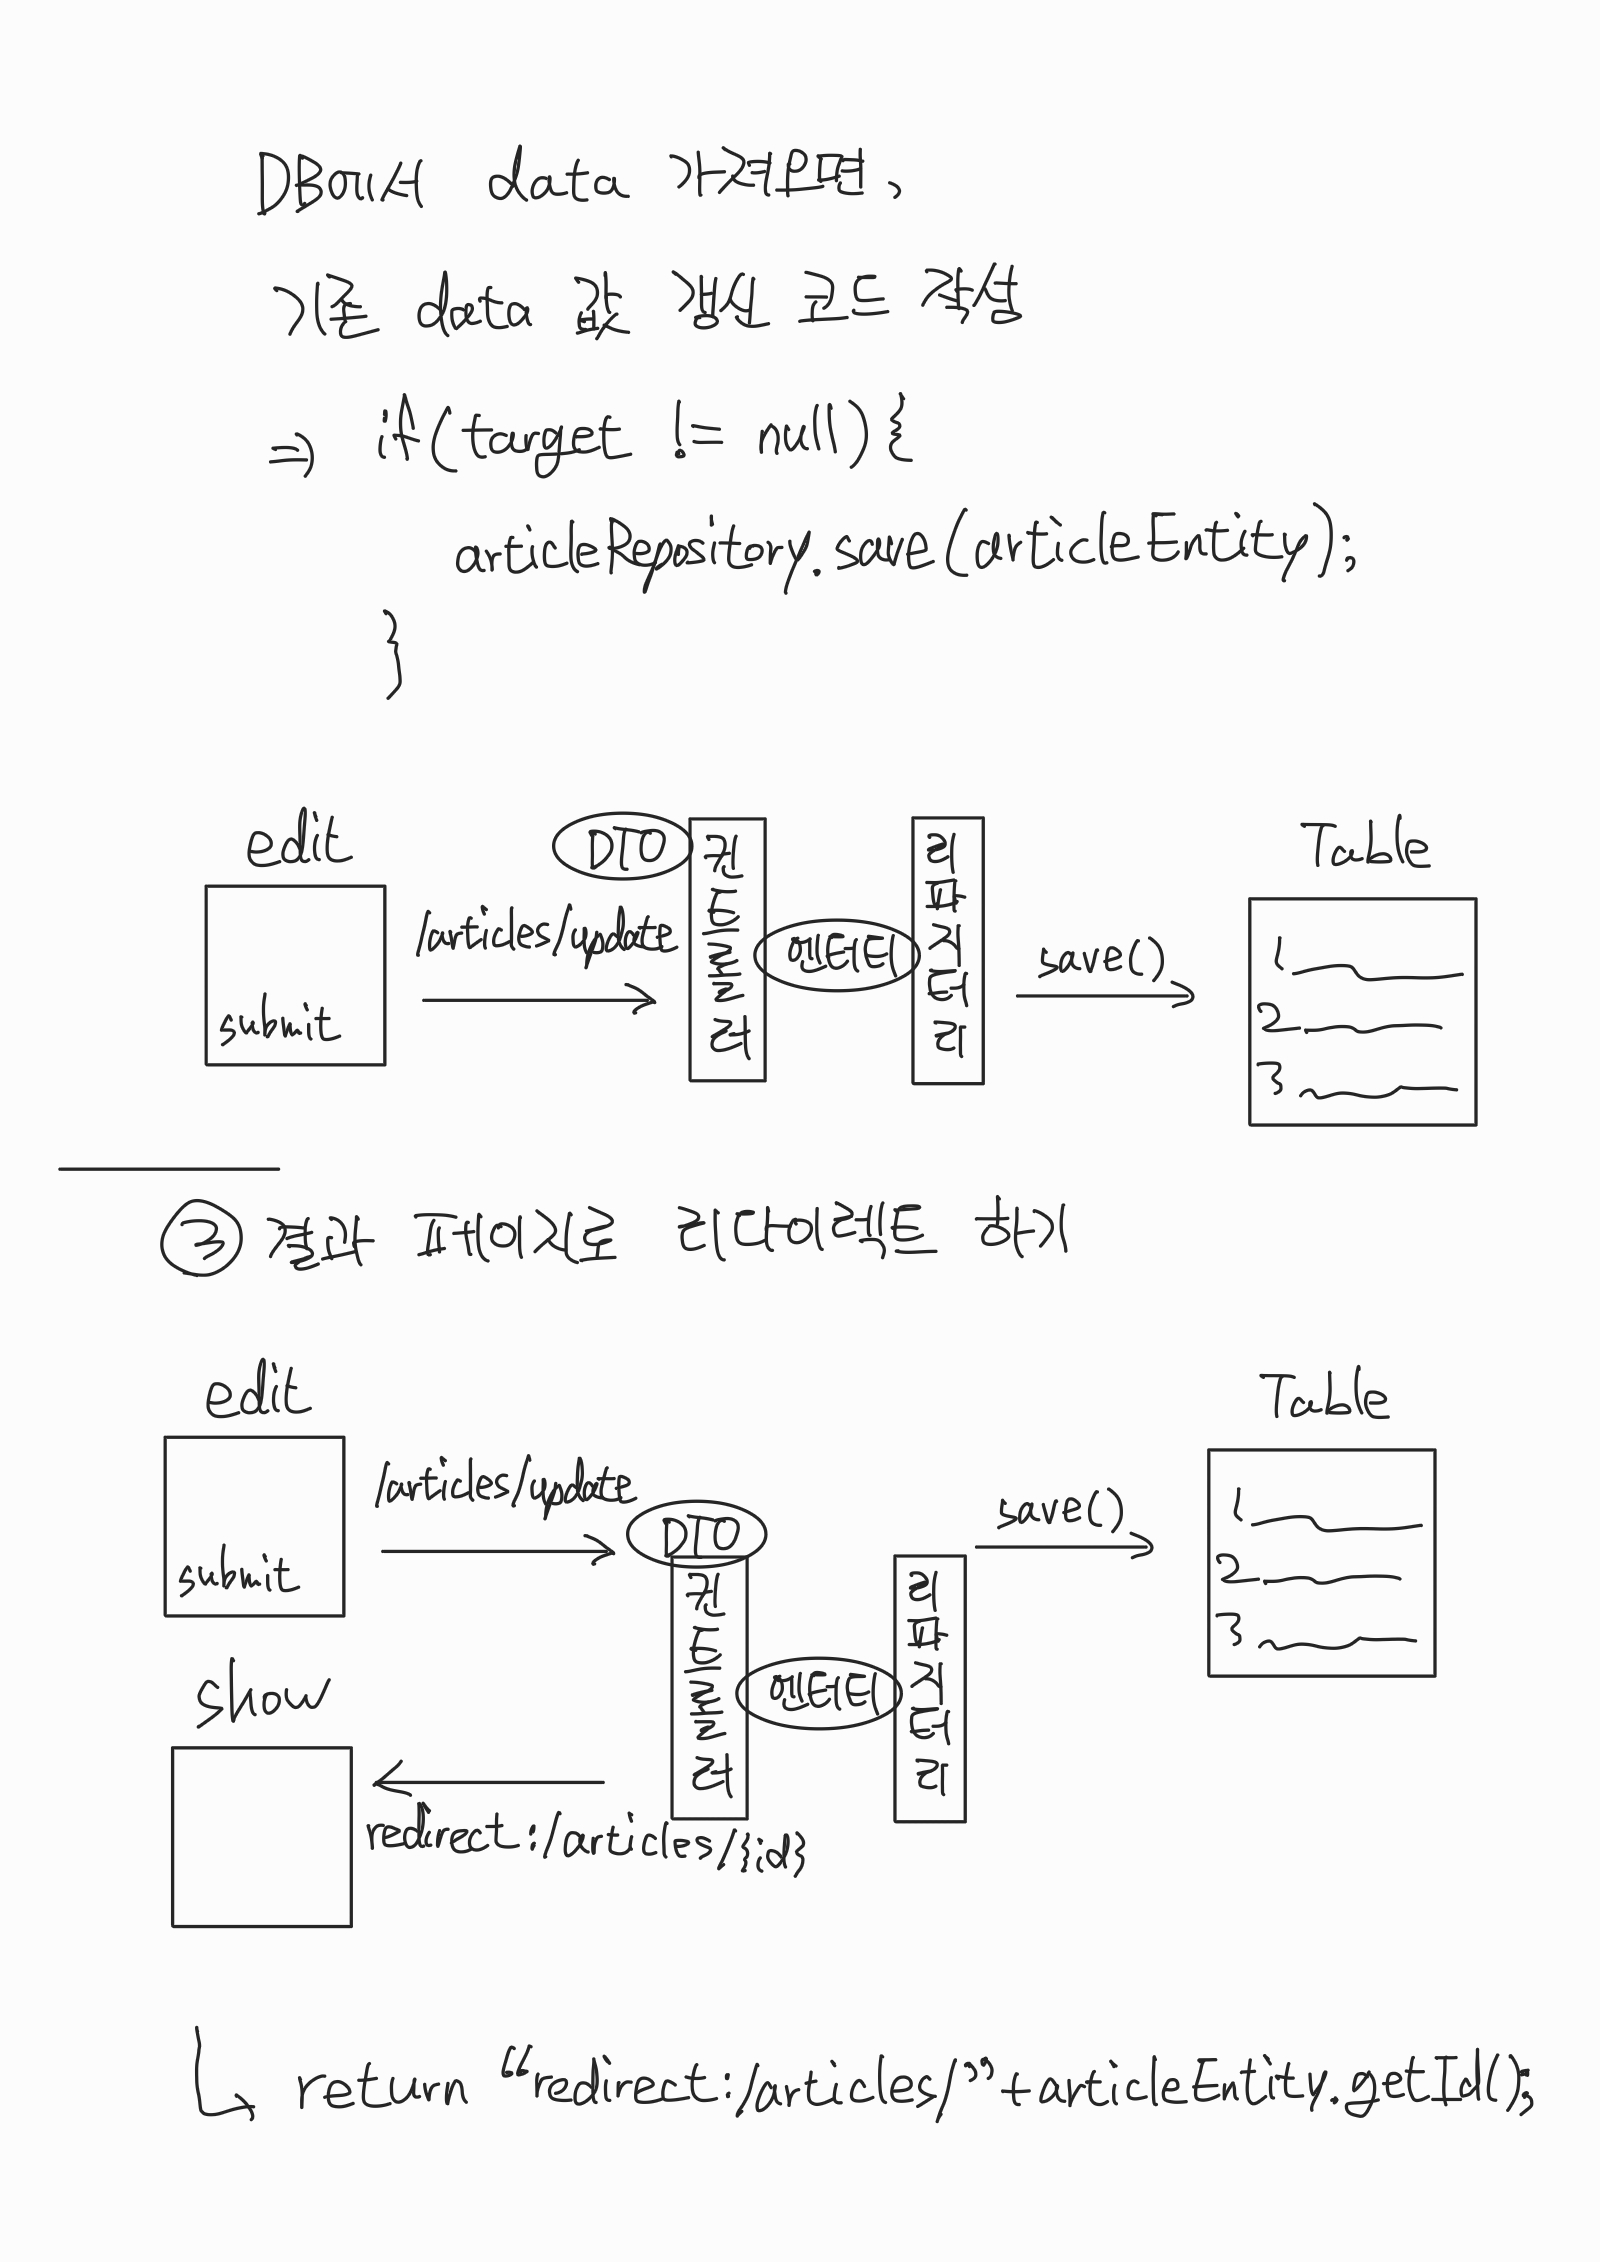 DB에서 data 가져오면,
기존 data 값 갱신 코드 작성
⇒ if(target != null) {
articleRepository.save(articleEntity);
}
edit
DTO
Table
/articles/update
컨트롤러
엔터티
리파지터리
save()
submit
1
2
3
③ 결과 페이지로 리다이렉트 하기
edit
Table
/articles/update
DTO
save()
submit
컨트롤러
엔터티
리파지터리
1
2
3
show
redirect:/articles/{id}
return “redirect:/articles/”+articleEntity.getId();